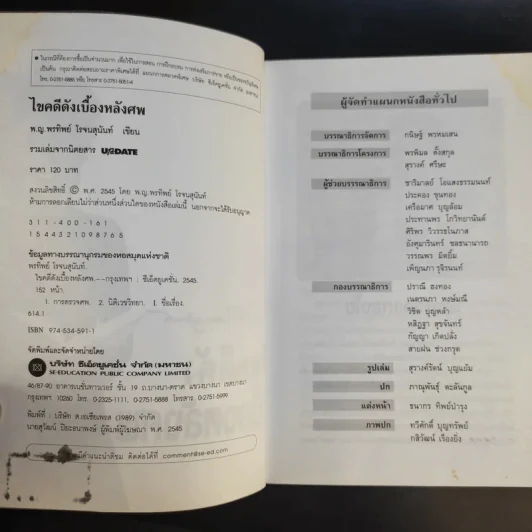 ● ในกรณีที่ต้องการซื้อเป็นจำนวนมาก เพื่อใช้ในการสอน การฝึกอบรม การส่งเสริมการขาย
เป็นต้น กรุณาติดต่อสอบถามราคาพิเศษได้ที่ แผนกการตลาดพิเศษ บริษัท ซีเอ็ดยูเคชั่น จำกัด
โทร. 0-2751-5885 หรือ โทรสาร 0-2751-5051-4
ไขคดีดังเบื้องหลังศพ
พ.ญ.พรทิพย์ โรจนสุนันท์ เขียน
รวมเล่มจากนิตยสาร UPDATE
ราคา 120 บาท
สงวนลิขสิทธิ์ © พ.ศ. 2545 โดย พ.ญ.พรทิพย์ โรจนสุนันท์
ห้ามการลอกเลียนไม่ว่าส่วนหนึ่งส่วนใดของหนังสือเล่มนี้ นอกจากจะได้รับอนุญาต
311-400-161
1544321098765
ข้อมูลทางบรรณานุกรมของหอสมุดแห่งชาติ
พรทิพย์ โรจนสุนันท์.
ไขคดีดังเบื้องหลังศพ.--กรุงเทพฯ : ซีเอ็ดยูเคชัน, 2545.
152 หน้า.
1. การตรวจศพ. 2. นิติเวชวิทยา. I. ชื่อเรื่อง.
614.1
ISBN 974-534-591-1
จัดพิมพ์และจัดจำหน่ายโดย
บริษัท ซีเอ็ดยูเคชั่น จำกัด (มหาชน)
SE-EDUCATION PUBLIC COMPANY LIMITED
46/87-90 อาคารเนชั่นทาวเวอร์ ชั้น 19 ถ.บางนา-ตราด แขวงบางนา เขตบางนา
กรุงเทพฯ 10260 โทร. 0-2325-1111, 0-2751-5888 โทรสาร 0-2751-5999
พิมพ์ที่ : บริษัท ส.เอเชียเพรส (1989) จำกัด
นายสุวัฒน์ ปิยะอนาพงษ์ ผู้พิมพ์ผู้โฆษณา พ.ศ. 2545
คำแนะนำติชม ติดต่อได้ที่ comment@se-ed.com
ผู้จัดทำแผนกหนังสือทั่วไป
บรรณาธิการจัดการ กนิษฐ์ พรหมเสน
บรรณาธิการโครงการ พรพิมล ตั้งสกุล
สุรางค์ ศรีษะ
ผู้ช่วยบรรณาธิการ ชาริมาลย์ โอแสงธรรมนนท์
ประคอง ขุนทอง
เครือมาศ บุญล้อม
ประทานพร โกวิทยานันต์
ศิริพร วิวรรธโนภาส
อังศุมารินทร์ ชลธนานารถ
วรรณพร มิตยิ้ม
เพ็ญนภา รุจิรนนท์
กองบรรณาธิการ ปราณี ธงทอง
เนตรนภา หงษ์มณี
วิชิพ บุญหล้า
หสิฎฐา สุขจันทร์
กัญญา เกิดปลั่ง
สายฝน ช่วงกรุด
รูปเล่ม สุรางค์รัตน์ บุญแย้ม
ปก ภาณุพันธุ์ ตะลันกูล
แต่งหน้า ธนากร ทิพย์บำรุง
ภาพปก ทวีศักดิ์ บุญทรัพย์
กสิวัฒน์ เรืองยิ่ง